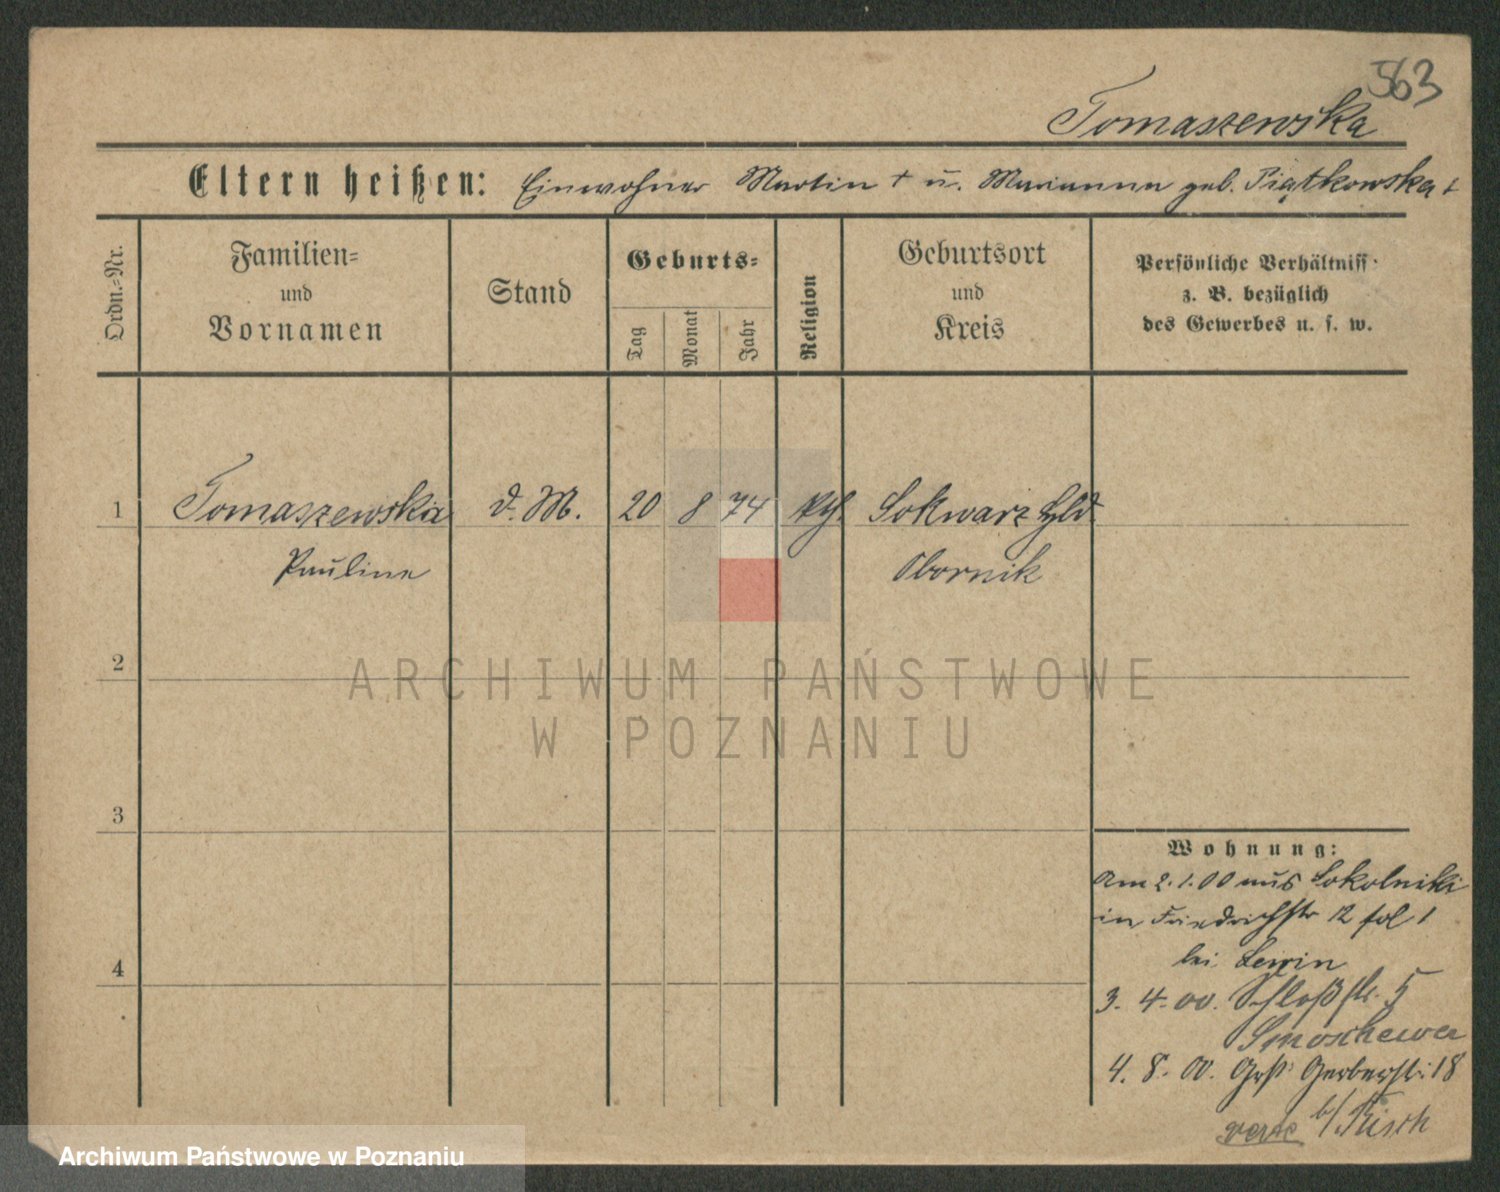 563
Tomaszewska
Eltern heißen: Einwohner Martin † u. Marianna geb. Piątkowska †
Ordn.-Nr.
Familien-
und
Vornamen
Stand
Geburts-
Tag
Monat
Jahr
Religion
Geburtsort
und
Kreis
Persönliche Verhältniss
z. B. bezüglich
des Gewerbes u. s. w.
1 Tomaszewska d. M. 20 8 74 kth. Sokwarz Hld.
Pauline Obornik
2
ARCHIWUM PAŃSTWOWE
W POZNANIU
3
Wohnung:
Am 2.1.00 aus Sokolniki
in Friedrichstr 12 fol 1
bei Lewin
4
3. 4. 00. Schloßstr. 5
Smoschewer
4. 8. 00. Grß. Gerberstr. 18
b/ Kirsch
verse
Archiwum Państwowe w Poznaniu